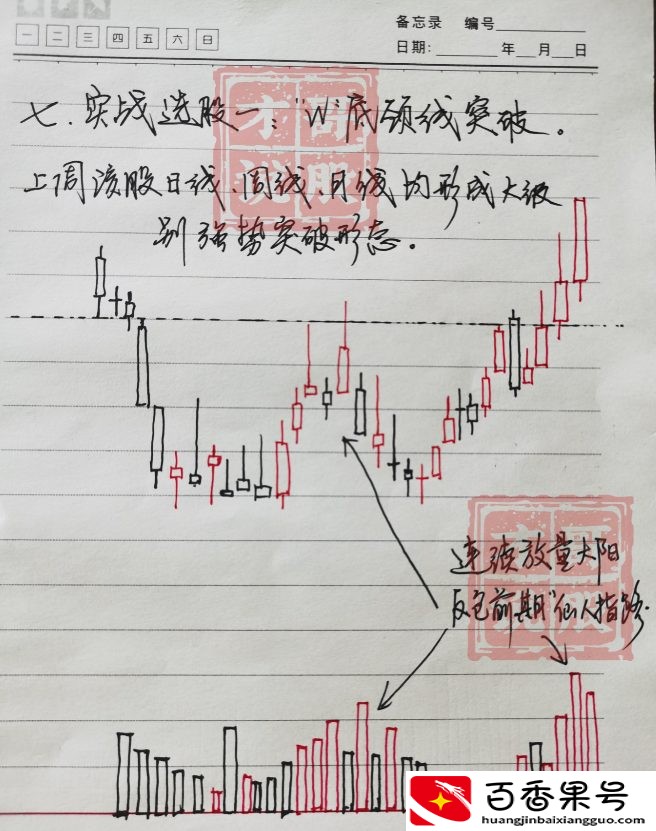 备忘录 编号
一 二 三 四 五 六 日
日期: 年 月 日
七、实战选股一："W"底颈线突破。
上周该股日线、周线、月线均形成大级
别强势突破形态。
连续放量大阳
反包前期"仙人指路
百香果号
huangjinbaixiangguo.com